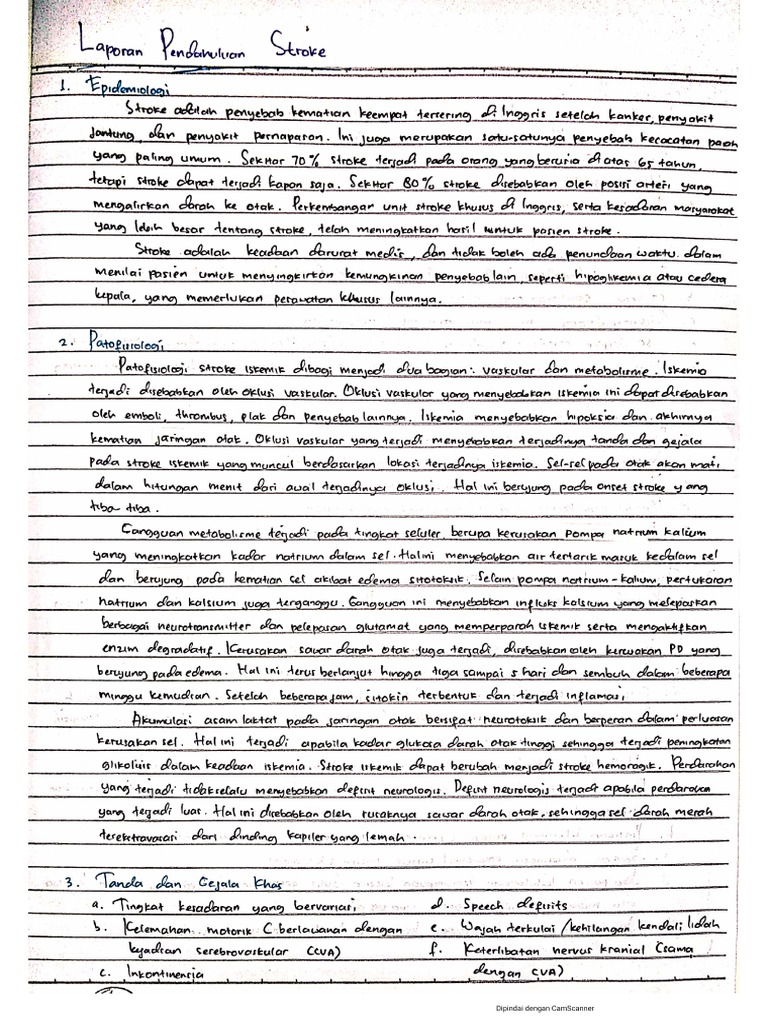 Laporan Pendahuluan Stroke
1. Epidemiologi
Stroke adalah penyebab kematian keempat tersering di Inggris setelah kanker, penyakit
jantung, dan penyakit pernapasan. Ini juga merupakan satu-satunya penyebab kecacatan parah
yang paling umum. Sekitar 70% stroke terjadi pada orang yang berusia di atas 65 tahun,
tetapi stroke dapat terjadi kapan saja. Sekitar 80% stroke disebabkan oleh posisi arteri yang
mengalirkan darah ke otak. Perkembangan unit stroke khusus di Inggris, serta kesadaran masyarakat
yang lebih besar tentang stroke, telah meningkatkan hasil untuk pasien stroke.
Stroke adalah keadaan darurat medis, dan tidak boleh ada penundaan waktu dalam
menilai pasien untuk menyingkirkan kemungkinan penyebab lain, seperti hipoglikemia atau cedera
kepala, yang memerlukan perawatan khusus lainnya.
2. Patofisiologi
Patofisiologi stroke iskemik dibagi menjadi dua bagian: vaskular dan metabolisme. Iskemia
terjadi disebabkan oleh oklusi vaskular. Oklusi vaskular yang menyebabkan iskemia ini dapat disebabkan
oleh emboli, thrombus, plak dan penyebab lainnya. Iskemia menyebabkan hipoksia dan akhirnya
kematian jaringan otak. Oklusi vaskular yang terjadi menyebabkan terjadinya tanda dan gejala
pada stroke iskemik yang muncul berdasarkan lokasi terjadinya iskemia. Sel-sel pada otak akan mati
dalam hitungan menit dari awal terjadinya oklusi. Hal ini berujung pada onset stroke yang
tiba tiba.
Gangguan metabolisme terjadi pada tingkat seluler, berupa kerusakan pompa natrium kalium
yang meningkatkan kadar natrium dalam sel. Hal ini menyebabkan air tertarik masuk kedalam sel
dan berujung pada kematian sel akibat edema sitotoksik. Selain pompa natrium-kalium, pertukaran
natrium dan kalsium juga terganggu. Gangguan ini menyebabkan influks kalsium yang melepaskan
berbagai neurotransmitter dan pelepasan glutamat yang memperparah iskemik serta mengaktifkan
enzim degradatif. Kerusakan sawar darah otak juga terjadi, disebabkan oleh kerusakan PD yang
berujung pada edema. Hal ini terus berlanjut hingga tiga sampai 5 hari dan sembuh dalam beberapa
minggu kemudian. Setelah beberapa jam, sitokin terbentuk dan terjadi inflamasi
Akumulasi asam laktat pada jaringan otak bersifat neurotoksik dan berperan dalam perluasan
kerusakan sel. Hal ini terjadi apabila kadar glukosa darah otak tinggi sehingga terjadi peningkatan
glikolisis dalam keadaan iskemia. Stroke iskemik dapat berubah menjadi stroke hemoragik. Perdarahan
yang terjadi tidak selalu menyebabkan defisit neurologis. Defisit neurologis terjadi apabila perdarahan
yang terjadi luas. Hal ini disebabkan oleh rusaknya sawar darah otak, sehingga sel darah merah
terekstravasasi dari dinding kapiler yang lemah.
3. Tanda dan Gejala Khas
a. Tingkat kesadaran yang bervariasi
b. Kelemahan motorik (berlawanan dengan
kejadian serebrovaskular (CVA)
c. Inkontinensia
d. Speech defisits
e. Wajah terkulai /kehilangan kendali lidah
f. Keterlibatan nervus kranial (sama
dengan CVA)
Dipindai dengan CamScanner